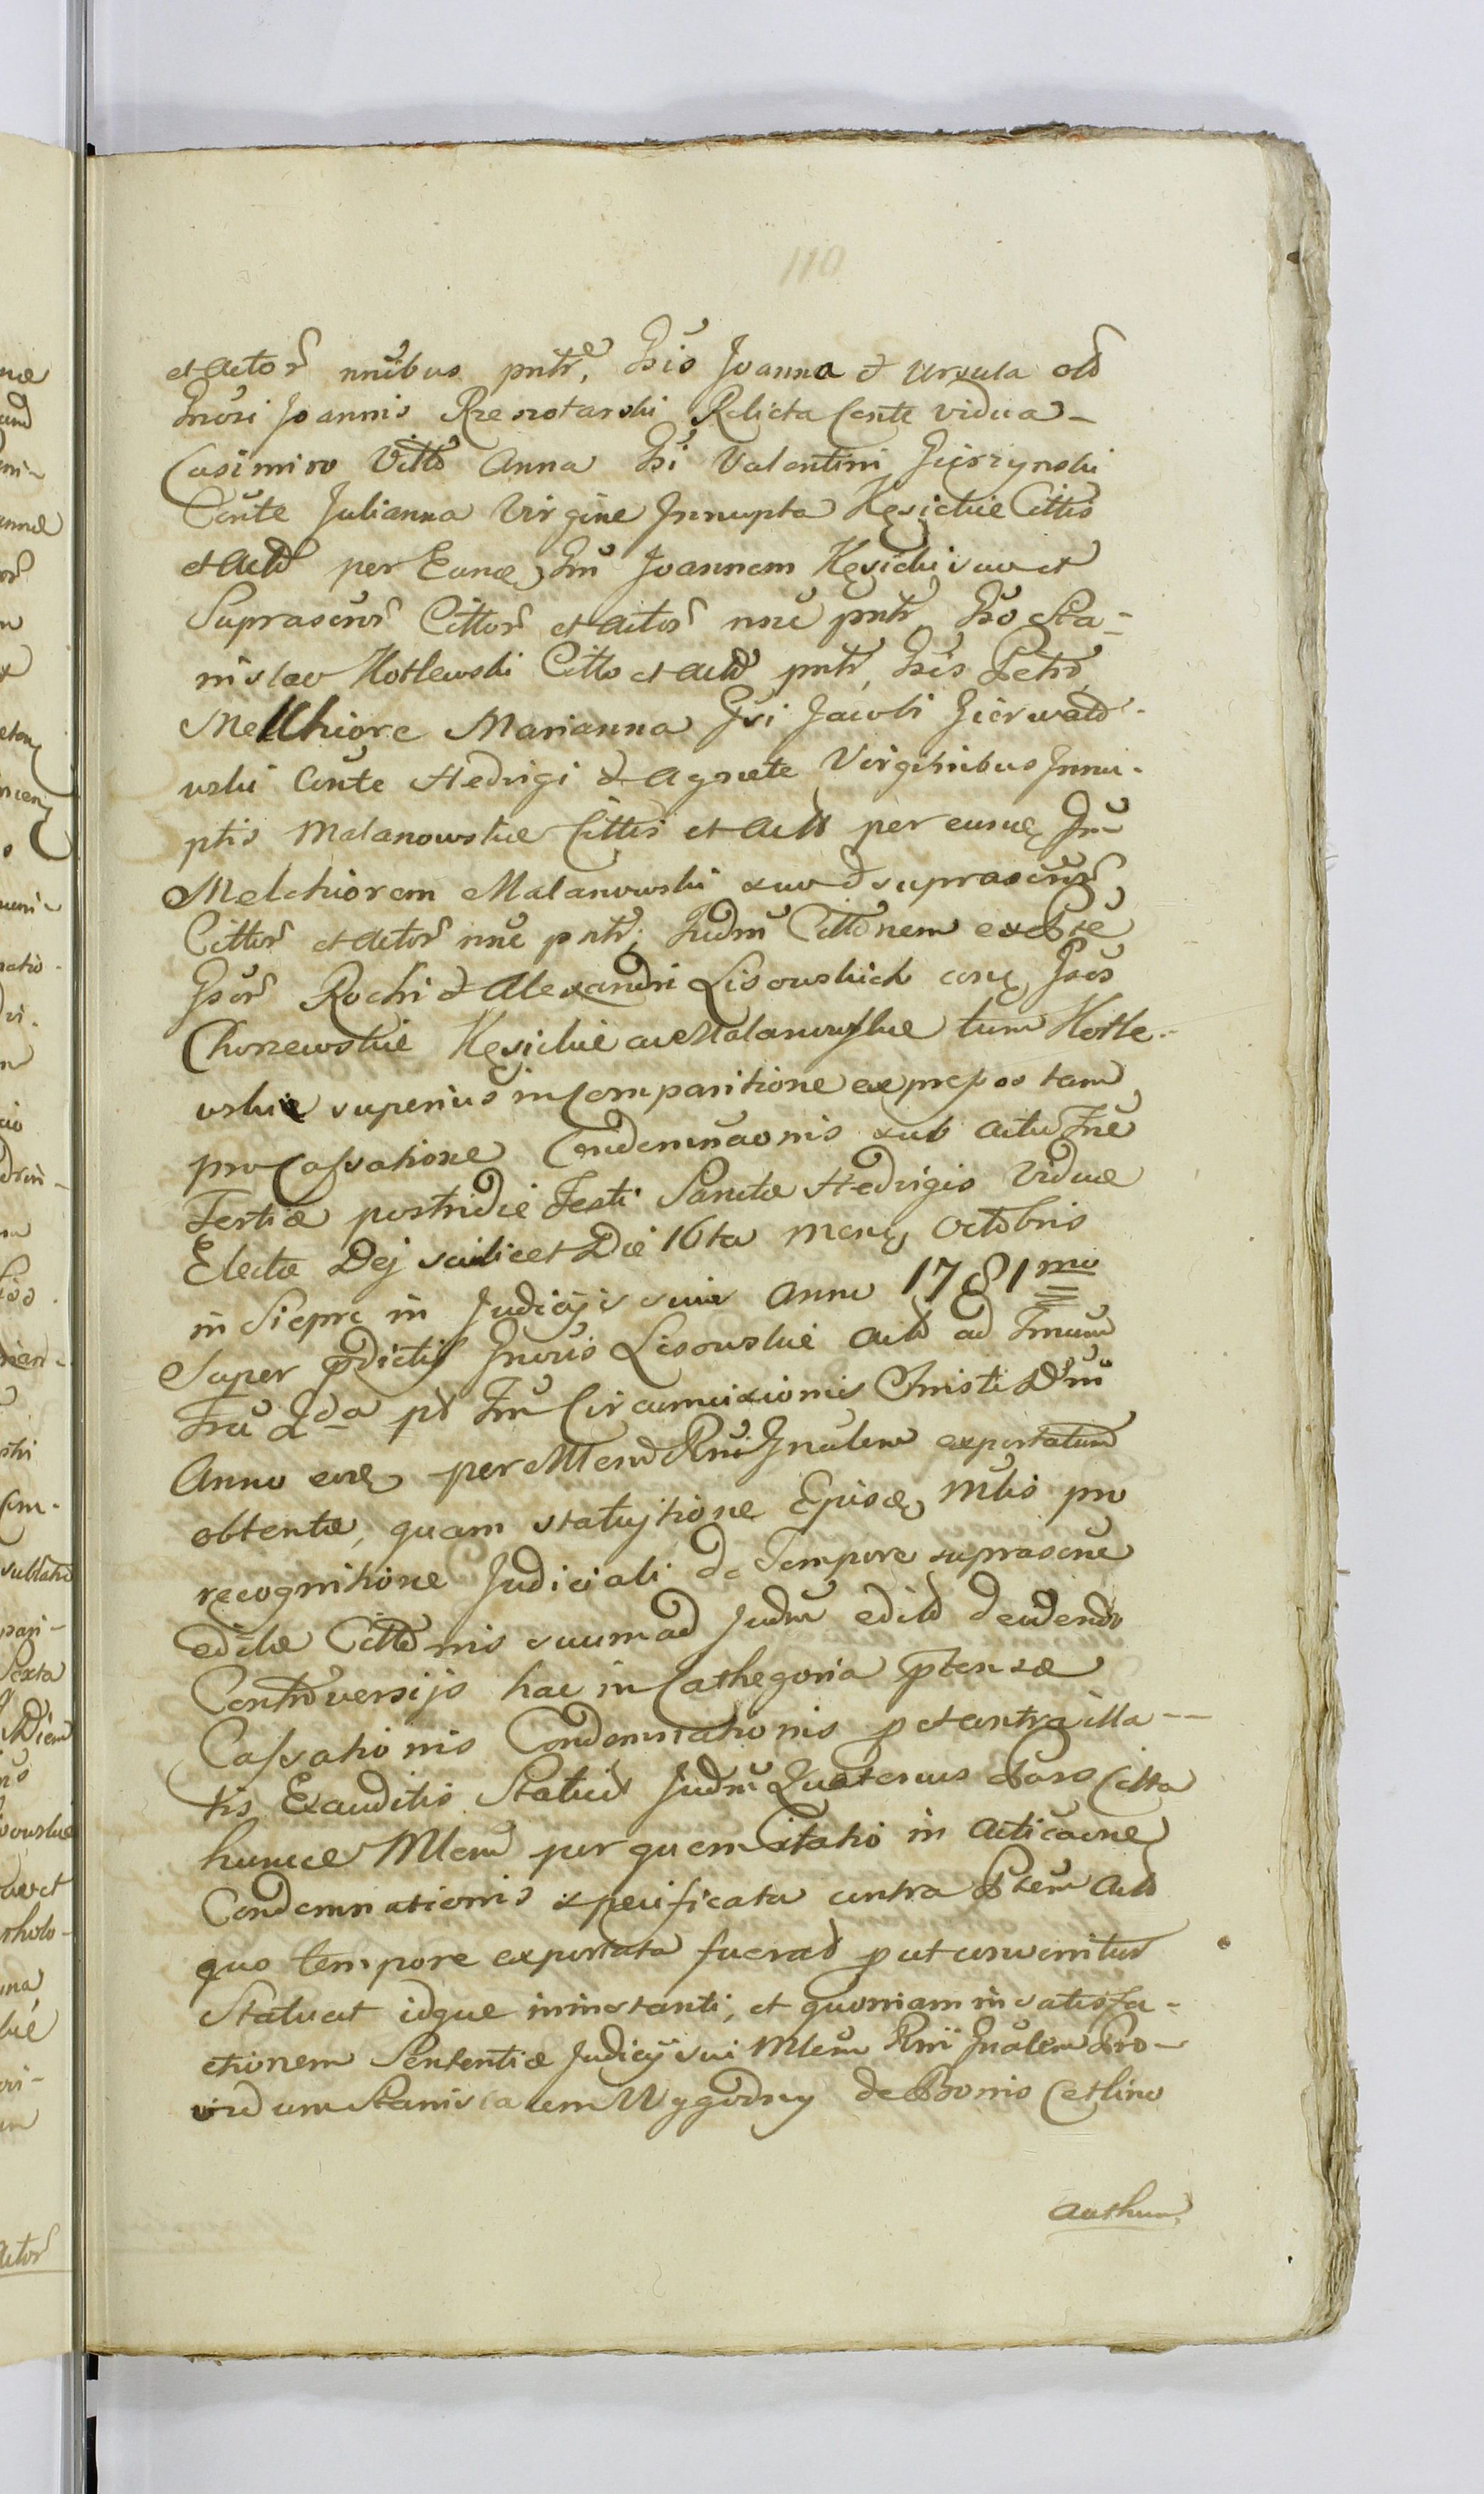 110
et Actor nnibus pntr, Gsis Joanna & Ursula olb
Gnosi Joannis Rzeszotarski Relicta Conte vidua -
Casimiro Citto Anna Gsi Valentini Gierzynski
Conte Julianna Virgine Innupta Kęsickie Cittis
et Actb per Eund Gm Joannem Kęsicki suo et
Suprascror Cittor et Actor nne pntr, Gso Sta-
nislao Kotlewski Citto et Actb pntr, Gsis Petro,
Mellhiore Marianna Gsi Jacobi Zierwald-
wski Conte Hedvigi & Agnete Virginibus Innu-
ptis Malanowskie Cittis et Actb per eund Gm
Melchiorem Malanowski suo & suprascror
Cittor et Actor nne pntr, Judm Cittonem ex Pte
Gsor Rochi & Alexandri Lisowskich conq Gsos
Chonewskie Kęsickie ac Malanowskie tum Kotle-
wskie superius in Comparitione express tam
pro Cassatione Condemnaonis sub Actu Fne
Tertiæ postridie Festi Sanctæ Hedvigis Viduæ
Electæ Dej scilicet Die 16ta mens Octobris
in Sierpc in Judicijs suis Anno 1781mo
Super pdictis Gnosis Lisowskie Actb ad Tmum
Fra 2da pd Fm Circumcisionis Christi Dnm
Anno eod per Mlem Rnii Gnalem exportatum
obtentæ, quam statujtione Episd Mlis pro
recognitione Judiciali de Tempore suprascne
editæ Cittonis suum ad Judm edito deudendo
Controversijs hac in Cathegoria ptensæ
Cassationis Condemnationis p et contra illa--
tis Exauditis Statuit Judm Quatenus Pars Citta
huncce Mlem per quem Citatio in Acticaone
Condemnationis specificata contra Ptem Actb
quo tempore exportata fuerat put convenitur
Statuat idque in instanti, et quoniam in satisfa-
ctionem Sententiæ Judicij sui Mlem Rnii Gnalem Pro-
vidum Stanislaum Wygodny de Bonis Cetlino
Acthum